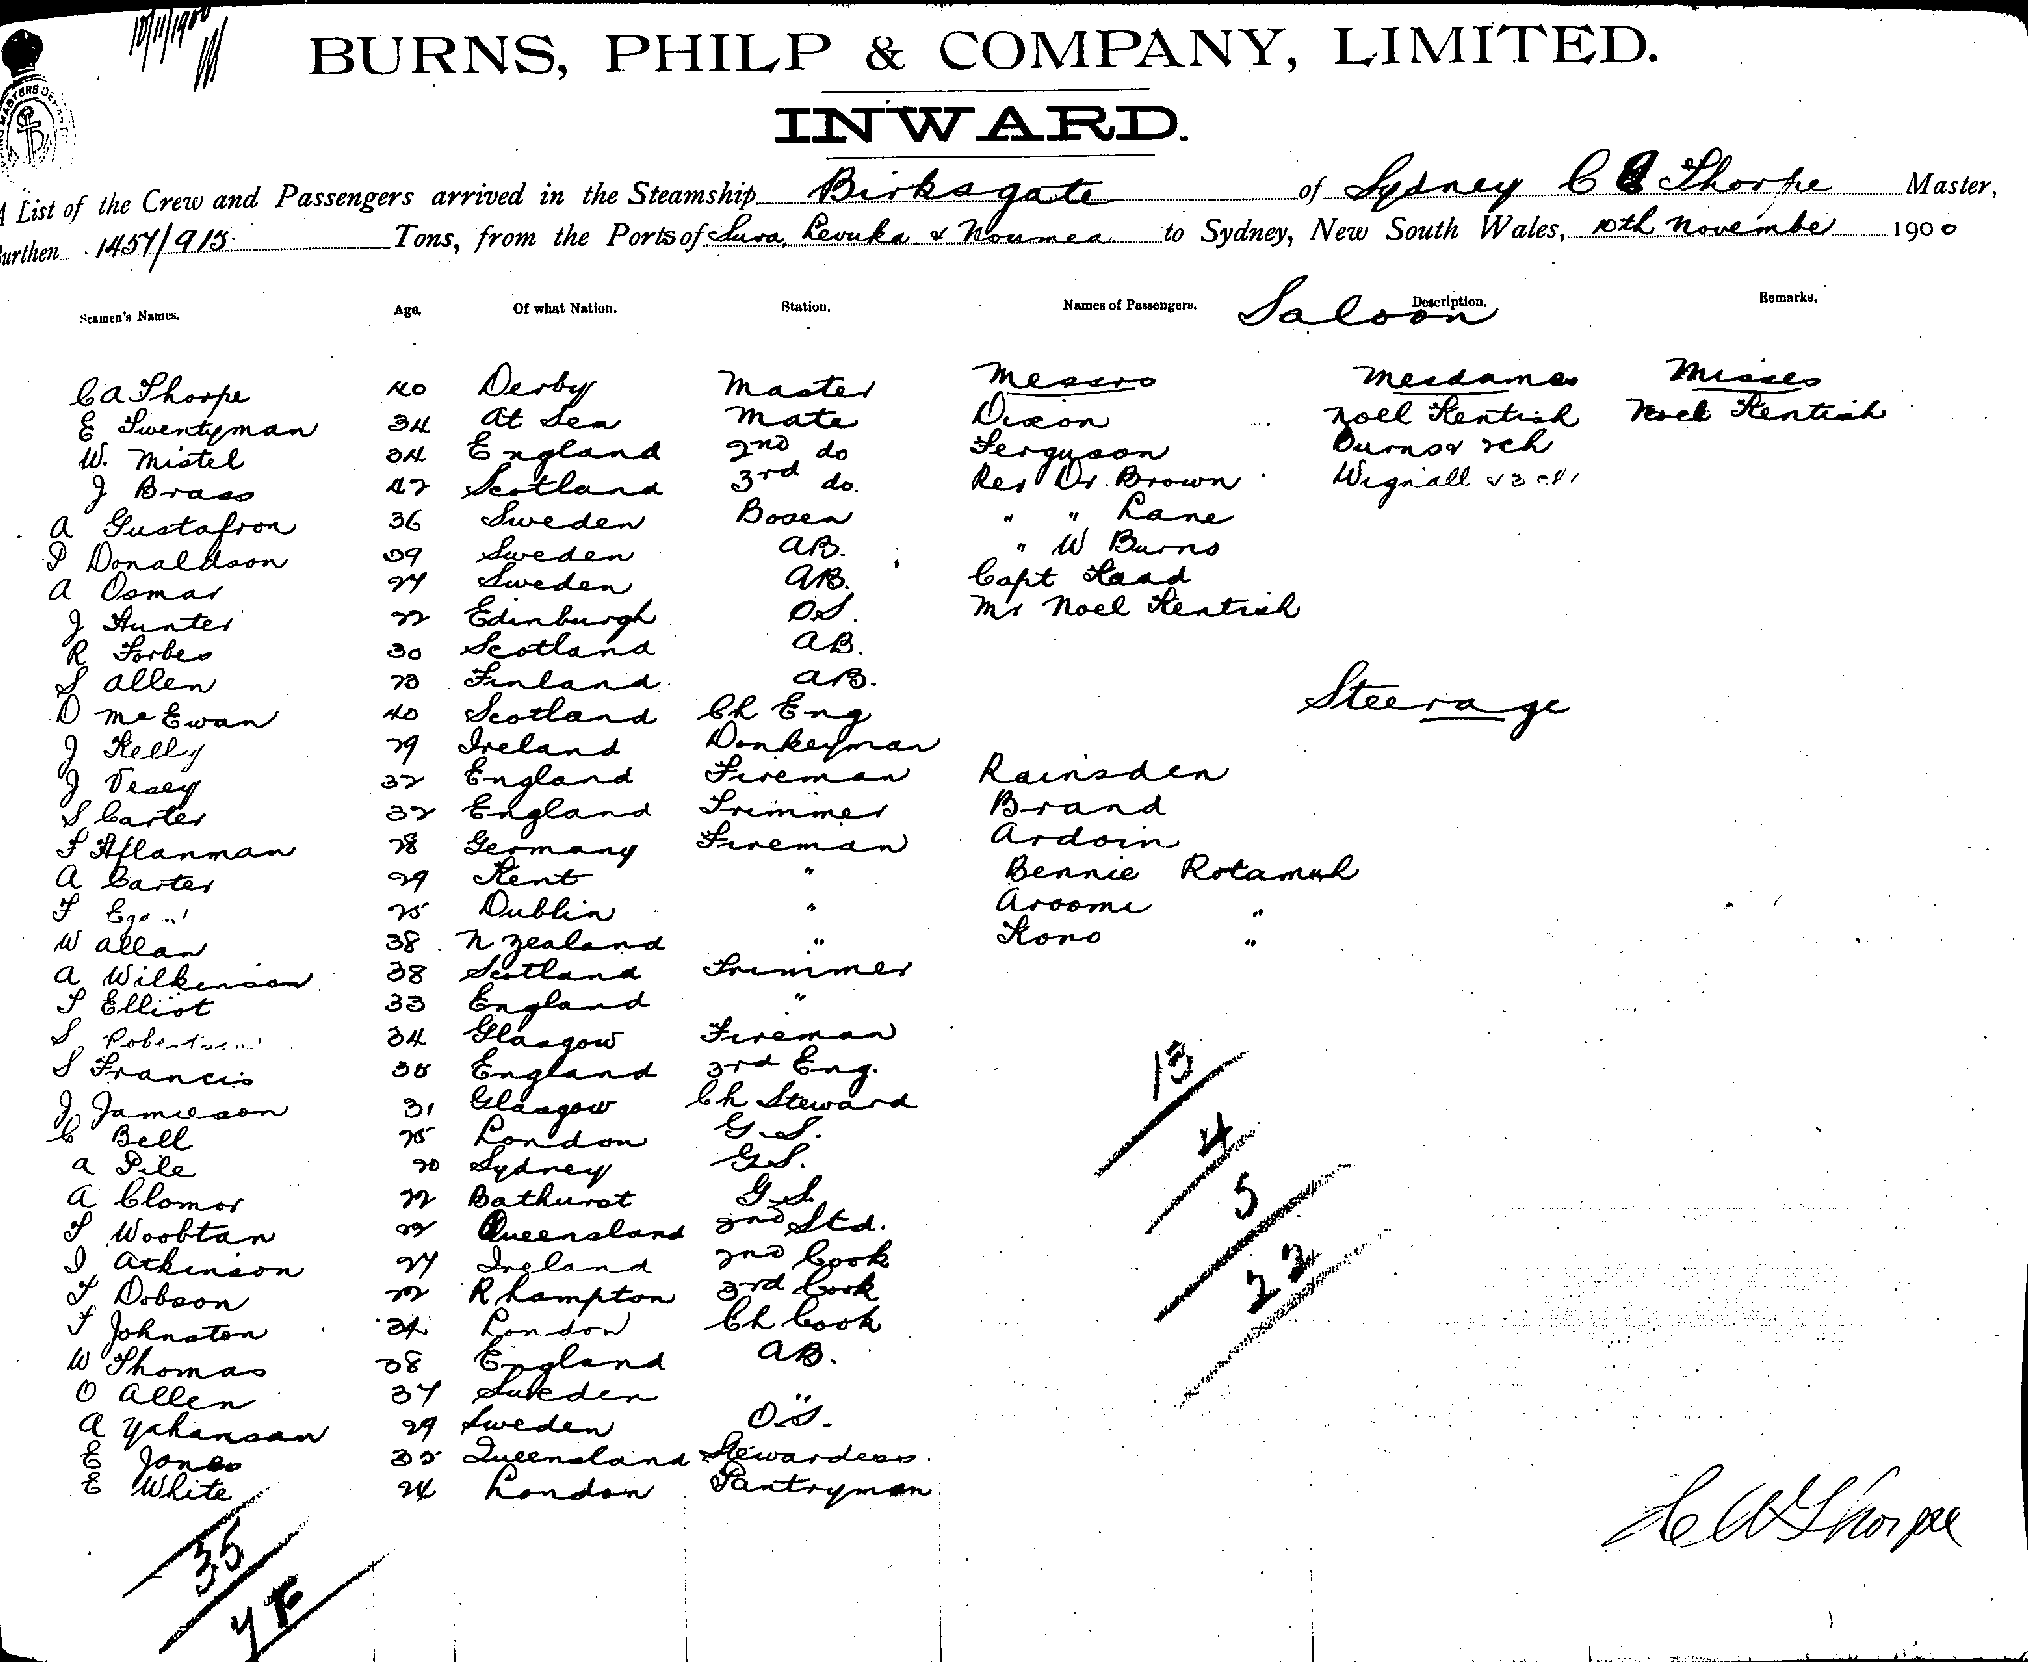 10/11/1900
BURNS, PHILP & COMPANY, LIMITED.
INWARD.
A List of the Crew and Passengers arrived in the Steamship Birksgate of Sydney C A Thorpe Master,
Burthen 1457/915 Tons, from the Ports of Suva, Levuka & Noumea to Sydney, New South Wales, 10th November 1900
Seamen's Names. Age. Of what Nation. Station. Names of Passengers. Saloon Description. Remarks.
C A Thorpe 40 Derby Master Messrs Mesdames Misses
E Twentyman 34 At Sea Mate Dixon Noel Kentish Noel Kentish
W. Mistel 34 England 2nd do Ferguson Burns & 2ch
J Brass 42 Scotland 3rd do. Rev Dr. Brown Wignall & 3 ch
A Gustafson 36 Sweden Bosen " " Lane
P Donaldson 39 Sweden AB. " W Burns
A Osmar 27 Sweden AB. Capt Haad
J Hunter 22 Edinburgh OS. Mr Noel Kentish
R Forbes 30 Scotland AB.
S Allen 23 Finland AB.
D McEwan 40 Scotland Ch Eng Steerage
J Kelly 29 Ireland Donkeyman
J Vesey 32 England Fireman Rainsden
S Carter 32 England Trimmer Brand
F Aflanman 28 Germany Fireman Ardoin
A Carter 29 Kent " Bennie Rotamah
T 25 Dublin " Aroomi "
W Allan 38 N Zealand " Kono "
A Wilkinson 38 Scotland Trimmer
T Elliot 33 England "
S Robertson 34 Glasgow Fireman
S Francis 35 England 3rd Eng.
J Jamieson 31 Glasgow Ch Steward
C Bell 25 London G.S.
A Pile 20 Sydney G.S.
A Clomor 22 Bathurst G.S.
T Woobtan 22 Queensland 2nd Std.
I Atkinson 27 Ireland 2nd Cook
F Dobson 22 R hampton 3rd Cook
F Johnston 34 London Ch Cook
W Thomas 38 England AB.
O Allen 37 Sweden "
A Yohansan 29 Sweden O.S.
E Jones 35 Queensland Stewardess
E White 24 London Pantryman
13
4
5
22
C A Thorpe
35
7F